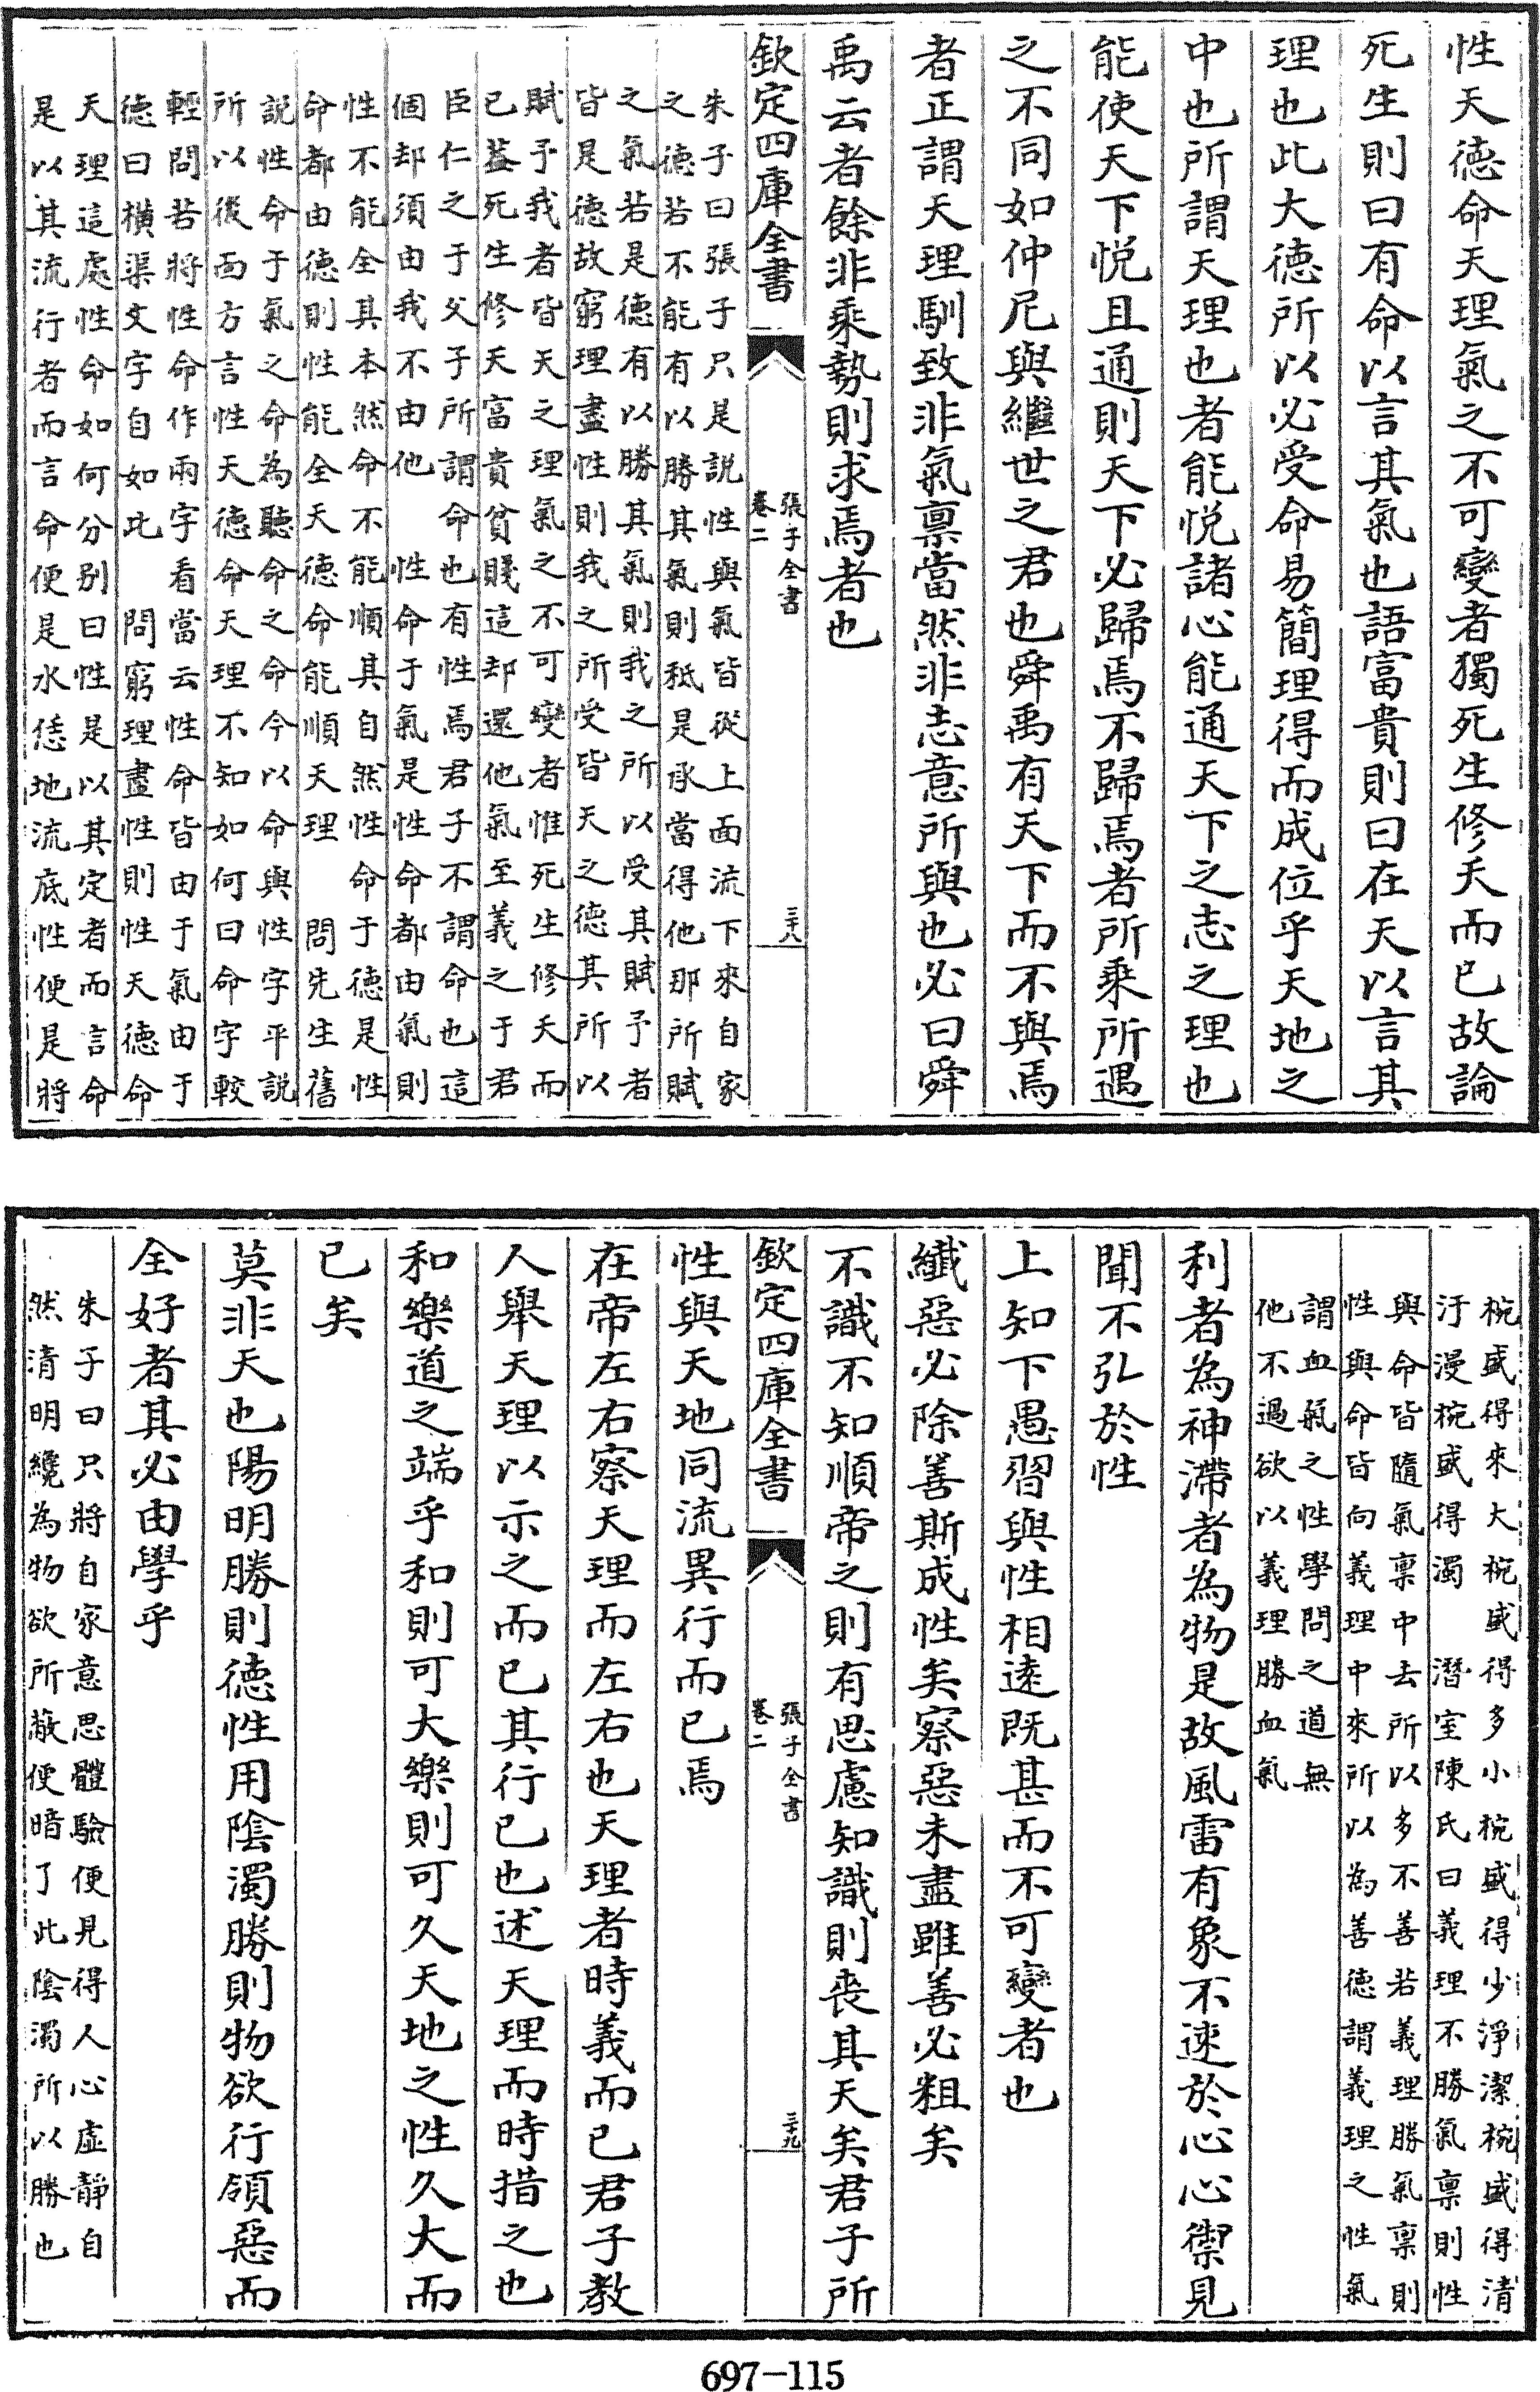 性天德命天理氣之不可變者獨死生修夭而已故論
死生則曰有命以言其氣也語富貴則曰在天以言其
理也此大德所以必受命易簡理得而成位乎天地之
中也所謂天理也者能悅諸心能通天下之志之理也
能使天下悅且通則天下必歸焉不歸焉者所乘所遇
之不同如仲尼與繼世之君也舜禹有天下而不與焉
者正謂天理馴致非氣禀當然非志意所與也必曰舜
禹云者餘非乘勢則求焉者也
欽定四庫全書
張子全書
卷二
三十八
朱子曰張子只是說性與氣皆從上面流下來自家
之德若不能有以勝其氣則秪是承當得他那所賦
之氣若是德有以勝其氣則我之所以受其賦予者
皆是德故窮理盡性則我之所受皆天之德其所以
賦予我者皆天之理氣之不可變者惟死生修夭而
已葢死生修夭富貴貧賤這却還他氣至義之于君
臣仁之于父子所謂命也有性焉君子不謂命也這
個却須由我不由他　性命于氣是性命都由氣則
性不能全其本然命不能順其自然性命于德是性
命都由德則性能全天德命能順天理　問先生舊
說性命于氣之命為聽命之命今以命與性字平說
所以後面方言性天德命天理不知如何曰命字較
輕問若將性命作兩字看當云性命皆由于氣由于
德曰橫渠文字自如此　問窮理盡性則性天德命
天理這處性命如何分别曰性是以其定者而言命
是以其流行者而言命便是水恁地流底性便是將
椀盛得來大椀盛得多小椀盛得少淨潔椀盛得清
汙漫椀盛得濁　潛室陳氏曰義理不勝氣禀則性
與命皆隨氣禀中去所以多不善若義理勝氣禀則
性與命皆向義理中來所以為善德謂義理之性氣
謂血氣之性學問之道無
他不過欲以義理勝血氣
利者為神滯者為物是故風雷有象不速於心心禦見
聞不弘於性
上知下愚習與性相遠既甚而不可變者也
纖惡必除善斯成性矣察惡未盡雖善必粗矣
不識不知順帝之則有思慮知識則喪其天矣君子所
欽定四庫全書
張子全書
卷二
三十九
性與天地同流異行而已焉
在帝左右察天理而左右也天理者時義而已君子教
人舉天理以示之而已其行已也述天理而時措之也
和樂道之端乎和則可大樂則可久天地之性久大而
已矣
莫非天也陽明勝則德性用陰濁勝則物欲行領惡而
全好者其必由學乎
朱子曰只將自家意思體驗便見得人心虛靜自
然清明纔為物欲所蔽便暗了此陰濁所以勝也
697-115